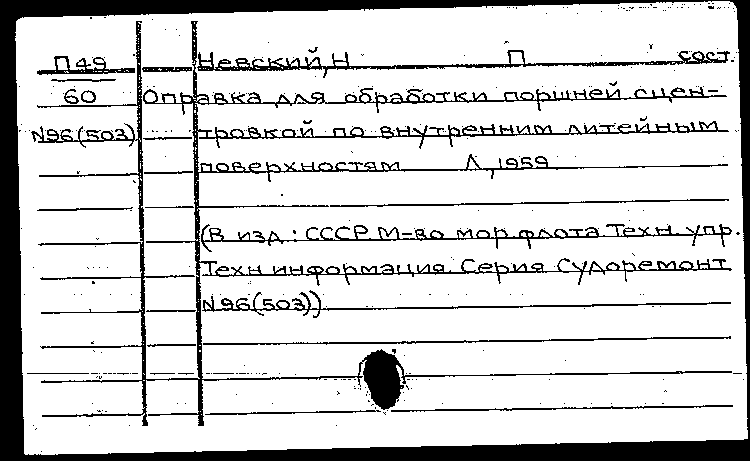 П49 Невский, Н П сост.
60 Оправка для обработки поршней с цен-
N96(503) тровкой по внутренним литейным
поверхностям Л, 1959
(В изд.: СССР М-во мор. флота Техн. упр.
Техн информация Серия Судоремонт
N96(503))